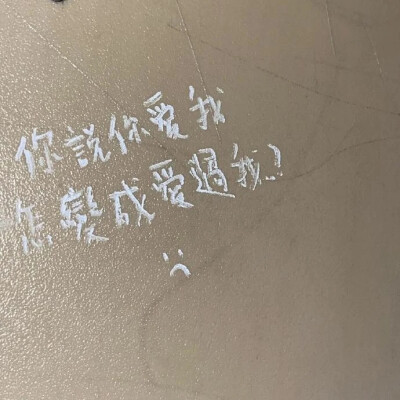 你說你愛我
怎變成愛過我.?
:(